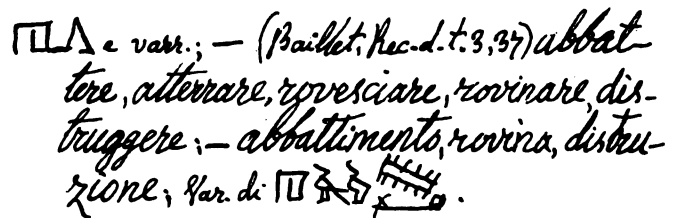 e varr.; — (Baillet, Rec. d. t. 3, 37) abbat-
tere, atterrare, rovesciare, rovinare, dis-
truggere; — abbattimento, rovina, distru-
zione; Var. di .